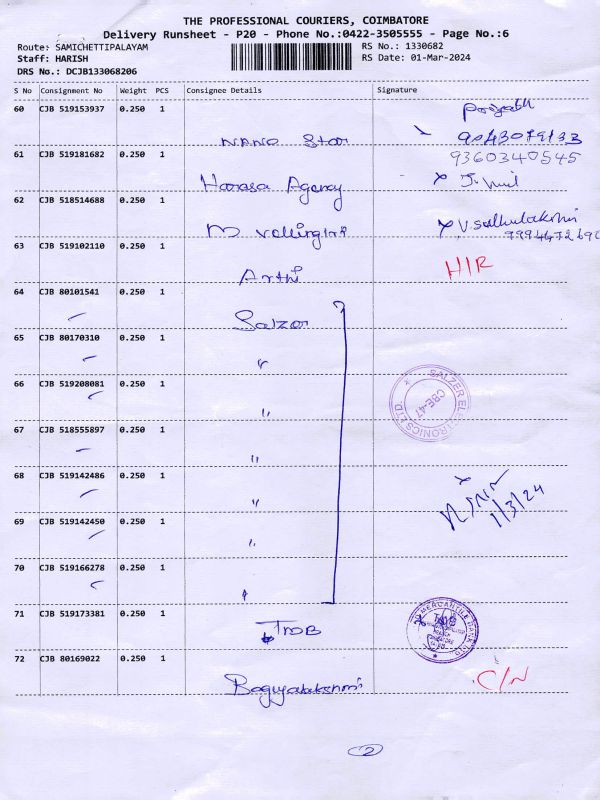 THE PROFESSIONAL COURIERS, COIMBATORE
Delivery Runsheet - P20 - Phone No.:0422-3505555 - Page No.:6
Route: SAMICHETTIPALAYAM
RS No.: 1330682
Staff: HARISH
RS Date: 01-Mar-2024
DRS No.: DCJB133068206
S No Consignment No Weight PCS Consignee Details Signature
60 CJB 519153937 0.250 1
Nano Star 9043079133
61 CJB 519181682 0.250 1 9360340545
Harasa Agency
62 CJB 518514688 0.250 1
M
63 CJB 519102110 0.250 1 H/R
Arthi
64 CJB 80101541 0.250 1
Salzer
65 CJB 80170310 0.250 1
"
66 CJB 519208081 0.250 1
"
SALZER ELECTRONICS LTD.
CBE-47
67 CJB 518555897 0.250 1
"
68 CJB 519142486 0.250 1
"
1/3/24
69 CJB 519142450 0.250 1
"
70 CJB 519166278 0.250 1
71 CJB 519173381 0.250 1
TMB
72 CJB 80169022 0.250 1
C/N
Bagyalakshmi
2